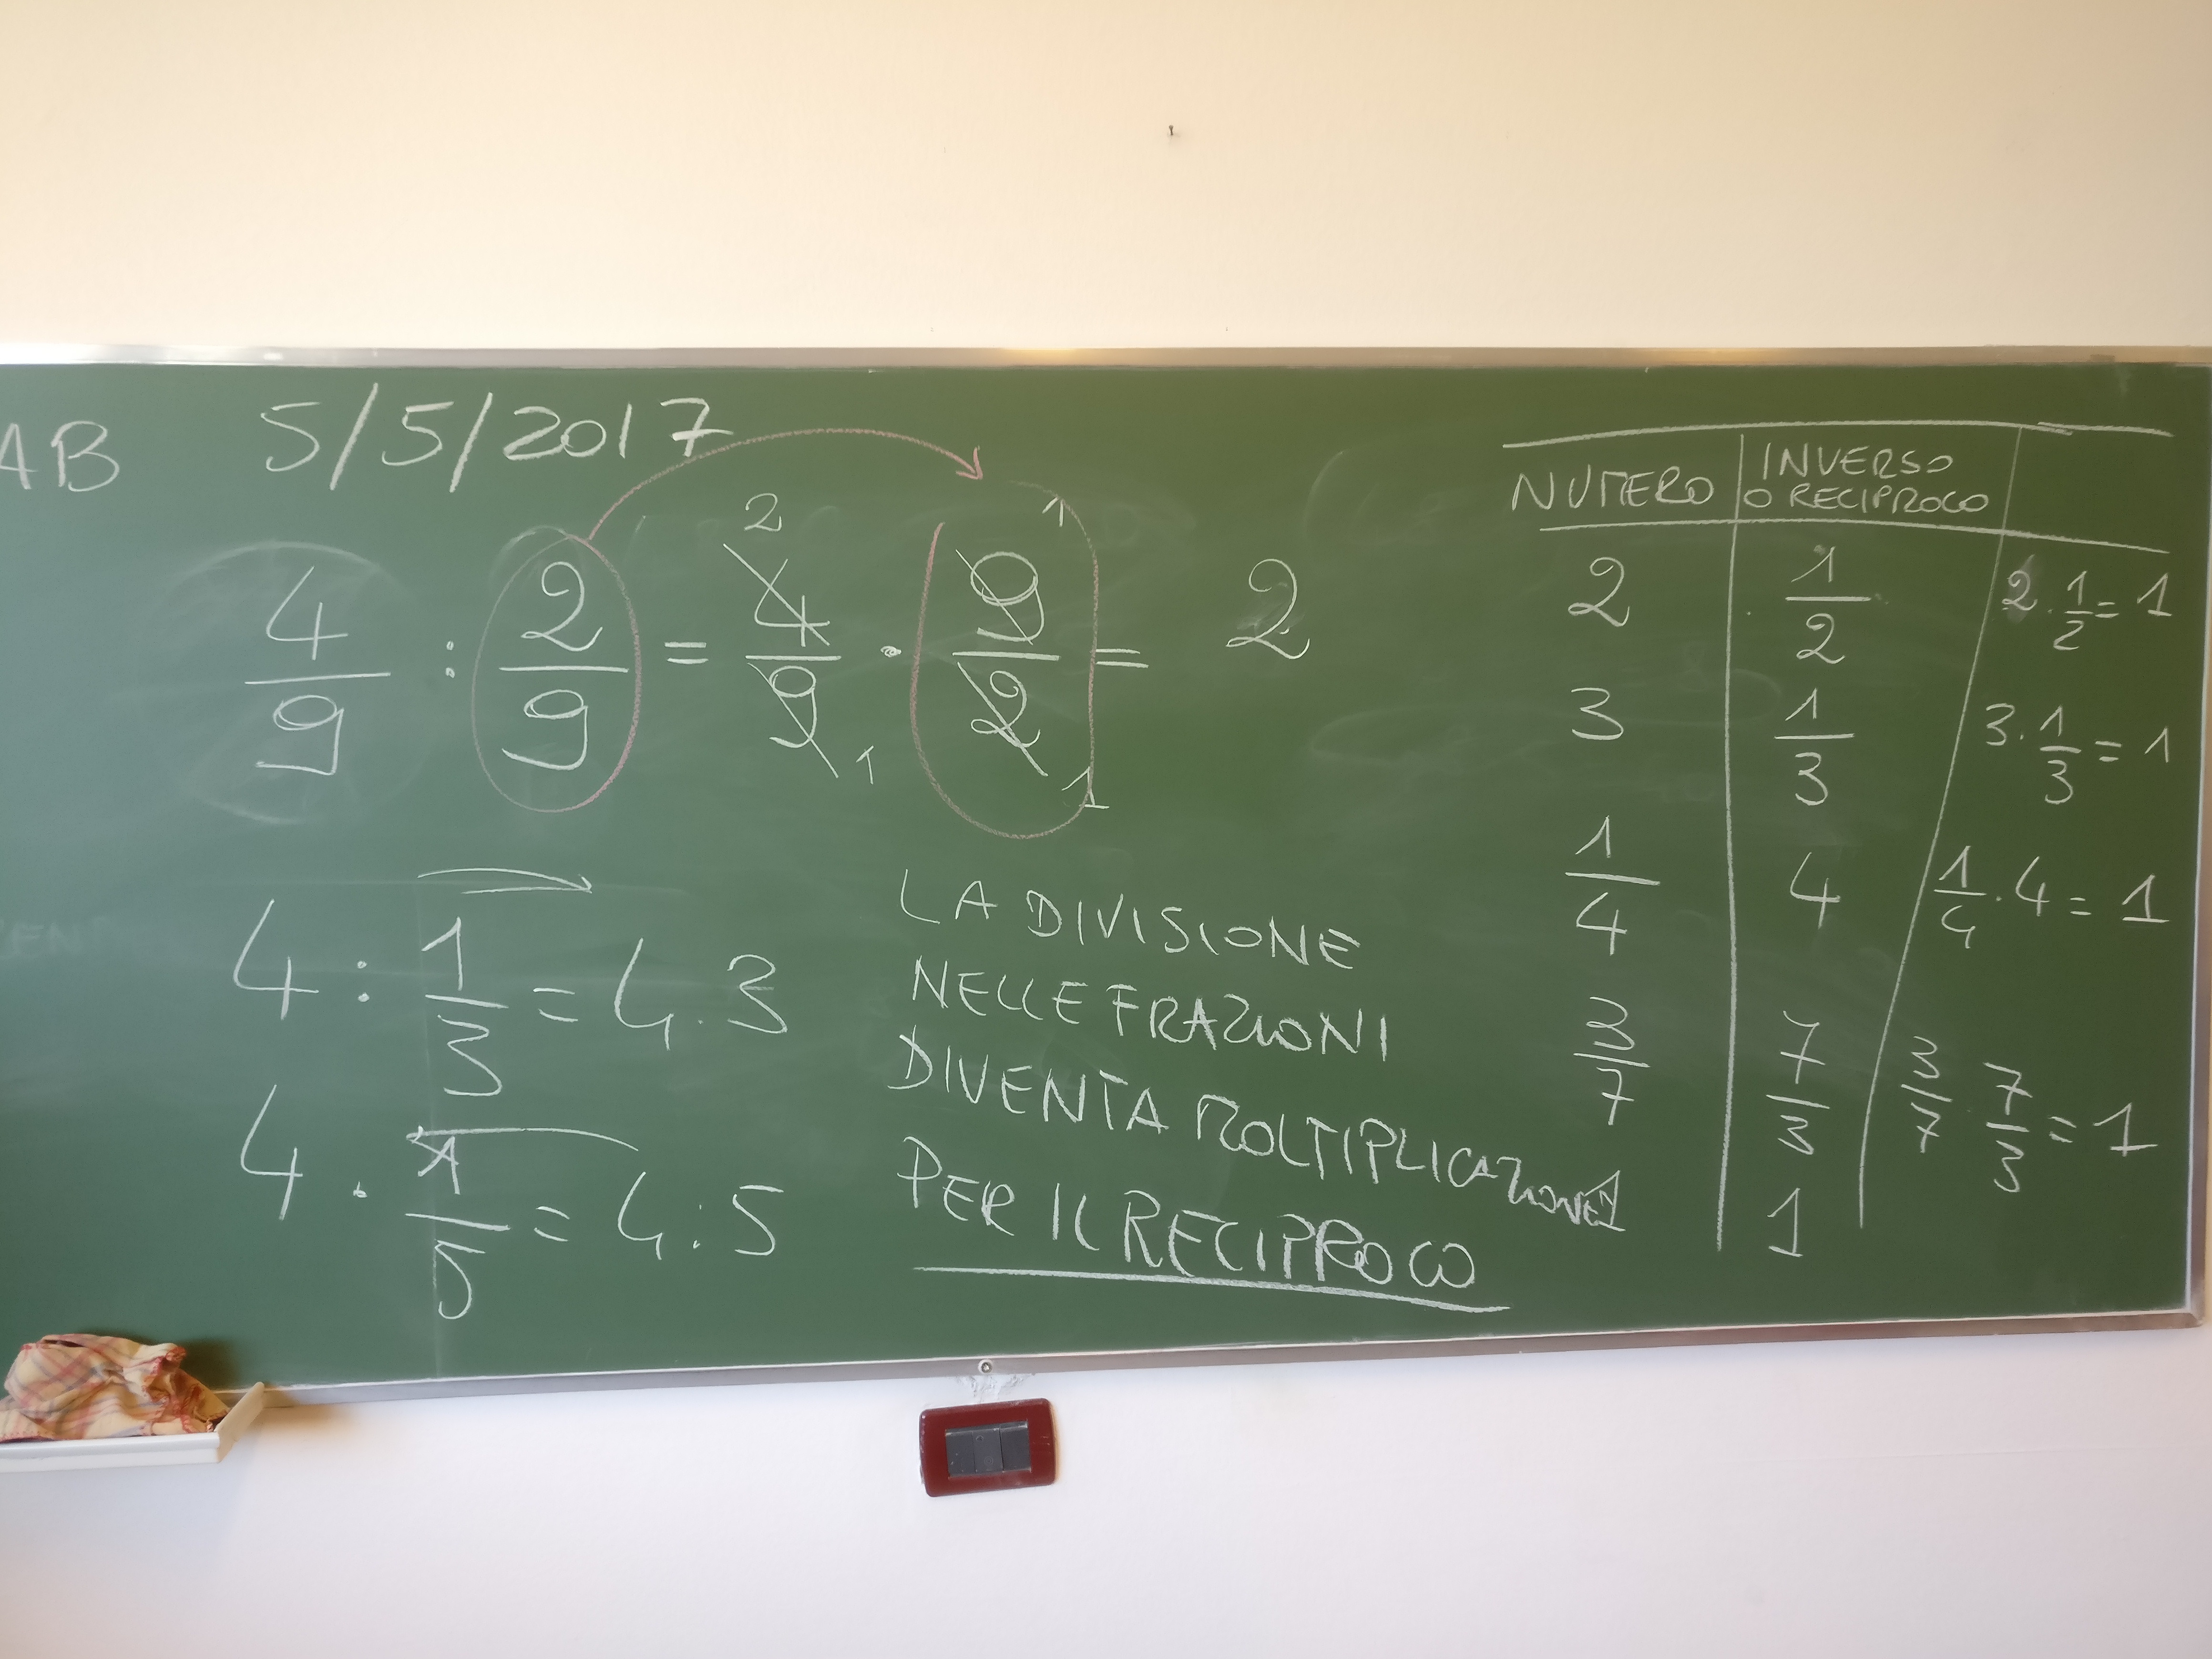 AB 5/5/2017
4/9 : 2/9 = 4/9 · 9/2 = 2
2 1
1 1
4 : 1/3 = 4 · 3
4 · 1/5 = 4 : 5
LA DIVISIONE
NELLE FRAZIONI
DIVENTA MOLTIPLICAZIONE
PER IL RECIPROCO
NUMERO INVERSO O RECIPROCO
2 1/2 2 · 1/2 = 1
3 1/3 3 · 1/3 = 1
1/4 4 1/4 · 4 = 1
3/7 7/3 3/7 · 7/3 = 1
1 1